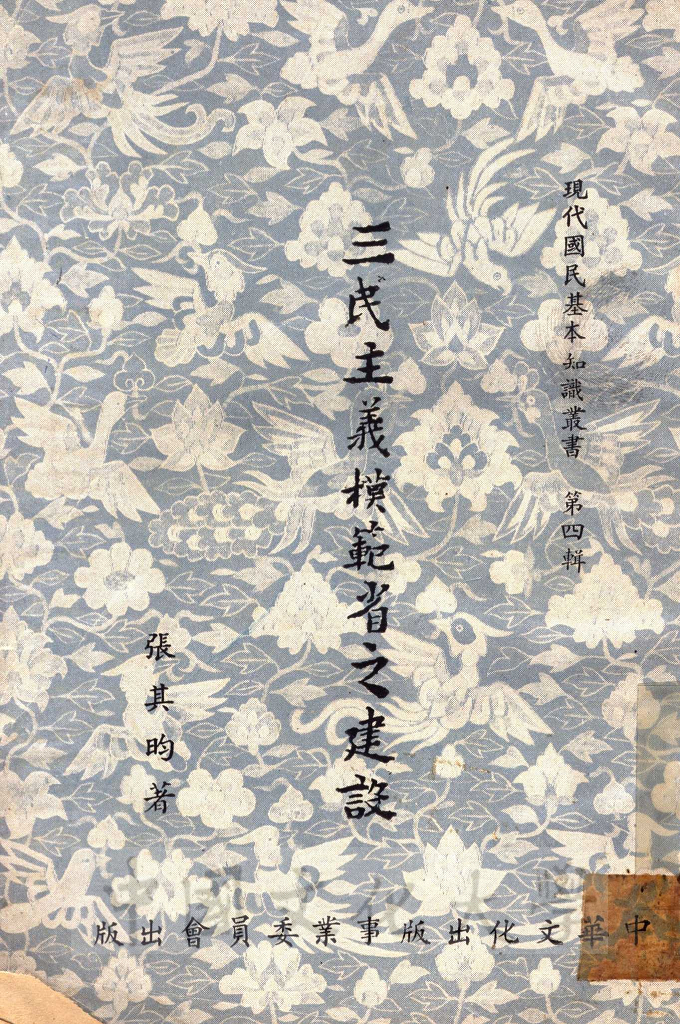 現代國民基本知識叢書 第四輯
三民主義模範省之建設
張其昀著
中華文化出版事業委員會出版
中國文化大學